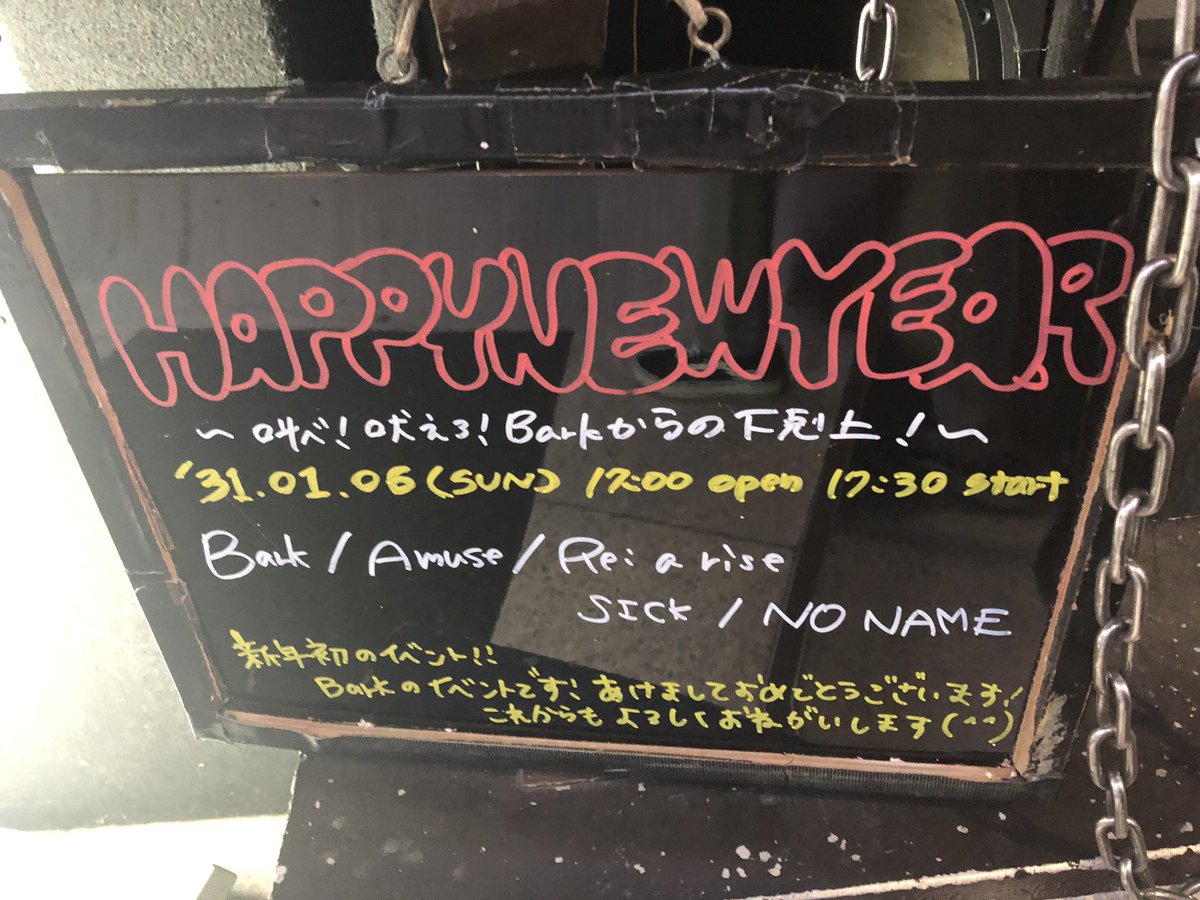 HAPPY NEW YEAR
〜叫べ!吠えろ!Barkからの下剋上!〜
'31.01.06(SUN) 17:00 open 17:30 start
Bark / Amuse / Re: a rise
SICK / NO NAME
新年初のイベント!!
Barkのイベントです!あけましておめでとうございます!
これからもよろしくおねがいします(^^)